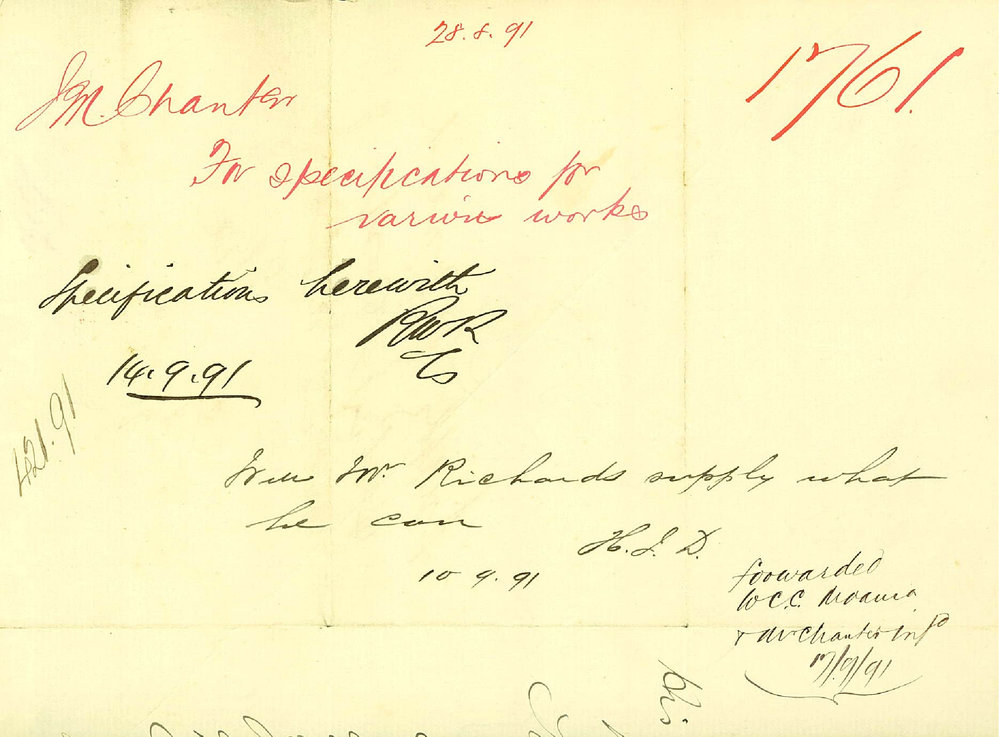 28.8.91
1761.
J.M. Chanter
For specifications for
various works
Specifications herewith
RWR
14.9.91
421.91
Will Mr Richards supply what
he can
H.J.D.
10 9.91
forwarded
to C.C. Moama
& Mr Chanter infd
17/9/91
his